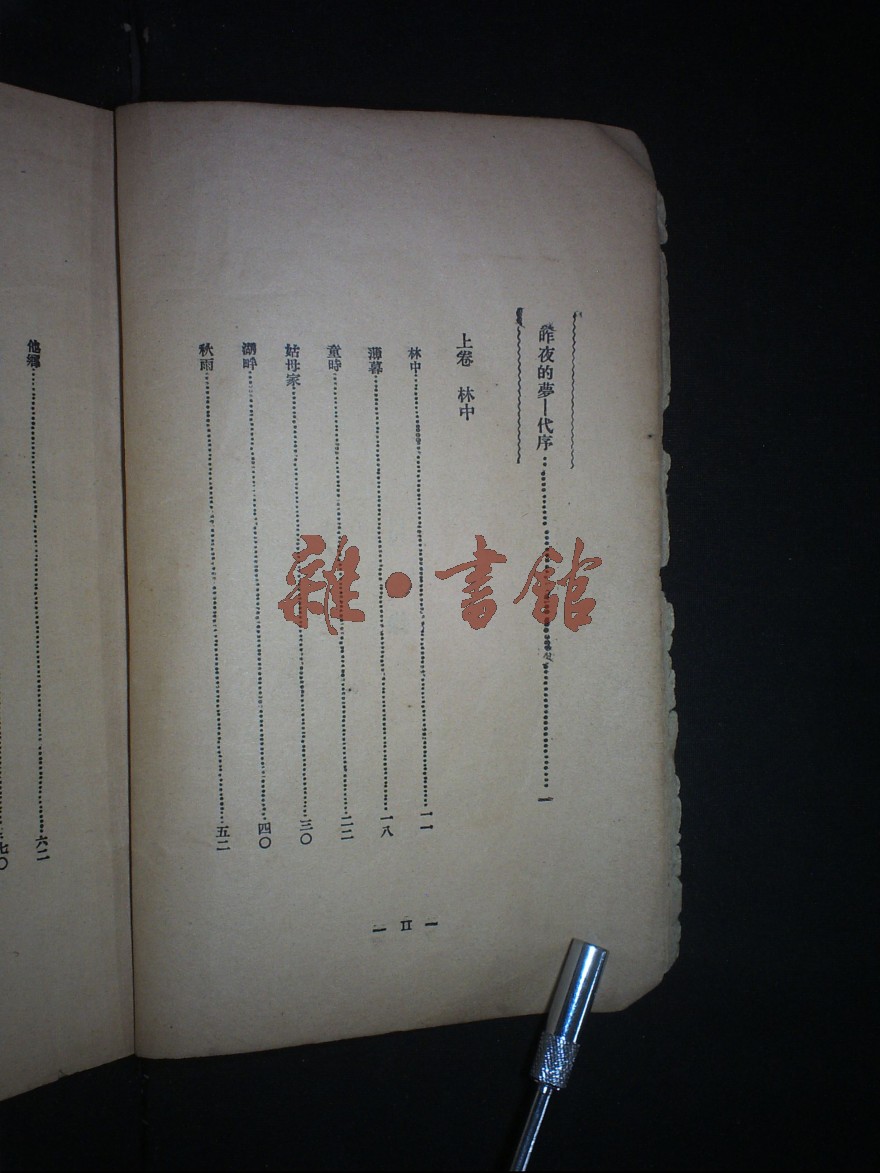 昨夜的夢—代序……一
上卷　林中
林中……一一
薄暮……一八
童時……二二
姑母家……三〇
湖畔……四〇
秋雨……五二
— II —
他鄉……六二
七〇
雜·書館